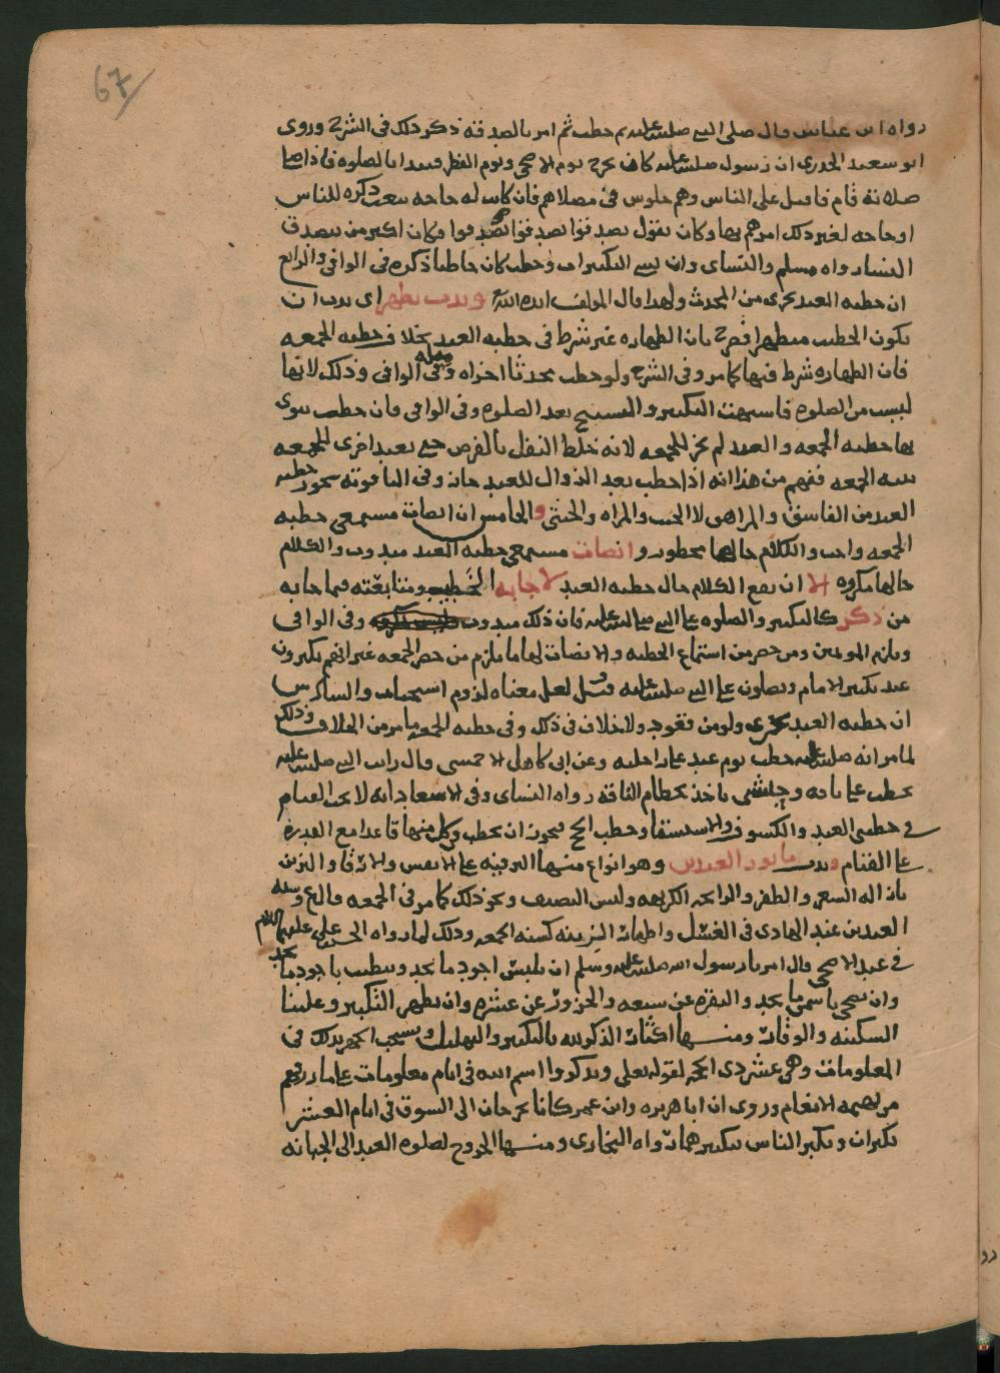 67
رواه ابن عباس قال صلى النبي صلى الله عليه ثم خطب ثم امر بالصدقة ذكر ذلك في الشرح وروى
ابو سعيد الخدري ان رسول صلى الله عليه كان يخرج يوم الاضحى ويوم الفطر فيبدا بالصلوه فاذا صلى
صلاته قام فاقبل على الناس وهم جلوس في مصلاهم فان كانت له حاجه ببعث ذكره للناس
او حاجه لغير ذلك امرهم بها وكان يقول تصدقوا تصدقوا تصدقوا وكان اكثر من يتصدق
النساء رواه مسلم والنساى وان نسي التكبيرات وخطب كان خاطبا ذكره في الوافي والرابع
ان خطبه العيد تجزي من المحدث ولهذا قال المولف ايده الله وندب تطهر اي ندب ان
يكون الخطيب متطهرا فصرح بان الطهاره غير شرط في خطبه العيد بخلاف خطبه الجمعه
فان الطهاره شرط فيها كما مر وفي الشرح ولو خطب محدثا اجزاه ومثله في الوافي وذلك لانها
ليست من الصلوه فاشبهت التكبير والتسبيح بعد الصلوه وفي الوافي فان خطب ينوى
بها خطبه الجمعه والعيد لم يجز للجمعه لانه خلط النفل بالفرض حتى يعيد اخرى للجمعه
بنيه الجمعه ففهم من هذا انه اذا خطب بعد الزوال للعيد جاز وفي الياقوته تجوز خطبه
العيد من الفاسق والمراهق لا الجنب والمراه والخنثى والخامس ان انصات مستمعي خطبه
الجمعه واجب والكلام حالها محظور وانصات مستمعي خطبه العيد مندوب والكلام
حالها مكروه الا ان يقع الكلام حال خطبه العيد لاجابه الخطيب ومتابعته فيما جا به
من ذكر كالتكبير والصلوه على النبي صلى الله عليه فان ذلك مندوب وفي الوافي
ويلزم المومنين ومن حضر من استماع الخطبه والانصات لها ما يلزم من حضر الجمعه غير انهم يكبرون
عند تكبير الامام ويصلون على النبي صلى الله عليه قيل لعل معناه لزوم استحباب والسادس
ان خطبه العيد تجزي ولو من قعود ولا خلاف في ذلك وفي خطبه الجمعه ما مر من الخلاف وذلك
لما مر انه صلى الله عليه خطب يوم عيد على راحلته وعن ابي كاهل الاحمسي قال رايت النبي صلى الله عليه
يخطب على ناقه وحبشي ياخذ بخطام الناقه رواه النساى وفي الاسعا دانه لا يجب القيام
في خطبتي العيد والكسوف والاستسقا وخطب الحج فيجوز ان يخطب وكل منها قاعدا مع القدره
على القيام وندب ماثور العيدين وهو انواع منها الترفيه على الانفس والارقا والتزين
بازاله الشعر والظفر والرايحه الكريهه ولبس النصيف ونحو ذلك كما مر في الجمعه قال ع وسنه
العيدين عند الهادي في الغسل واظهار الزينه كسنه الجمعه وذلك لما رواه الحسن بن علي عليهم السلام
في عيد الاضحى قال امرنا رسول الله صلى الله عليه وسلم ان نلبس اجود ما نجد ونتطيب باجود ما نجد
وان نضحي باسمن ما نجد والبقره عن سبعه والجزور عن عشره وان نظهر التكبير وعلينا
السكينه والوقار ومنها اكثار الذكر لله بالتكبير والتهليل ويستحب الجهر بذلك في
المعلومات وهي عشر ذي الحجه لقوله تعلى ويذكروا اسم الله في ايام معلومات على ما رزقهم
من بهيمه الانعام وروى ان ابا هريره وابن عمر كانا يخرجان الى السوق في ايام العشر
يكبران ويكبر الناس بتكبيرهما رواه البخاري ومنها الخروج لصلوه العيد الى الجبانه